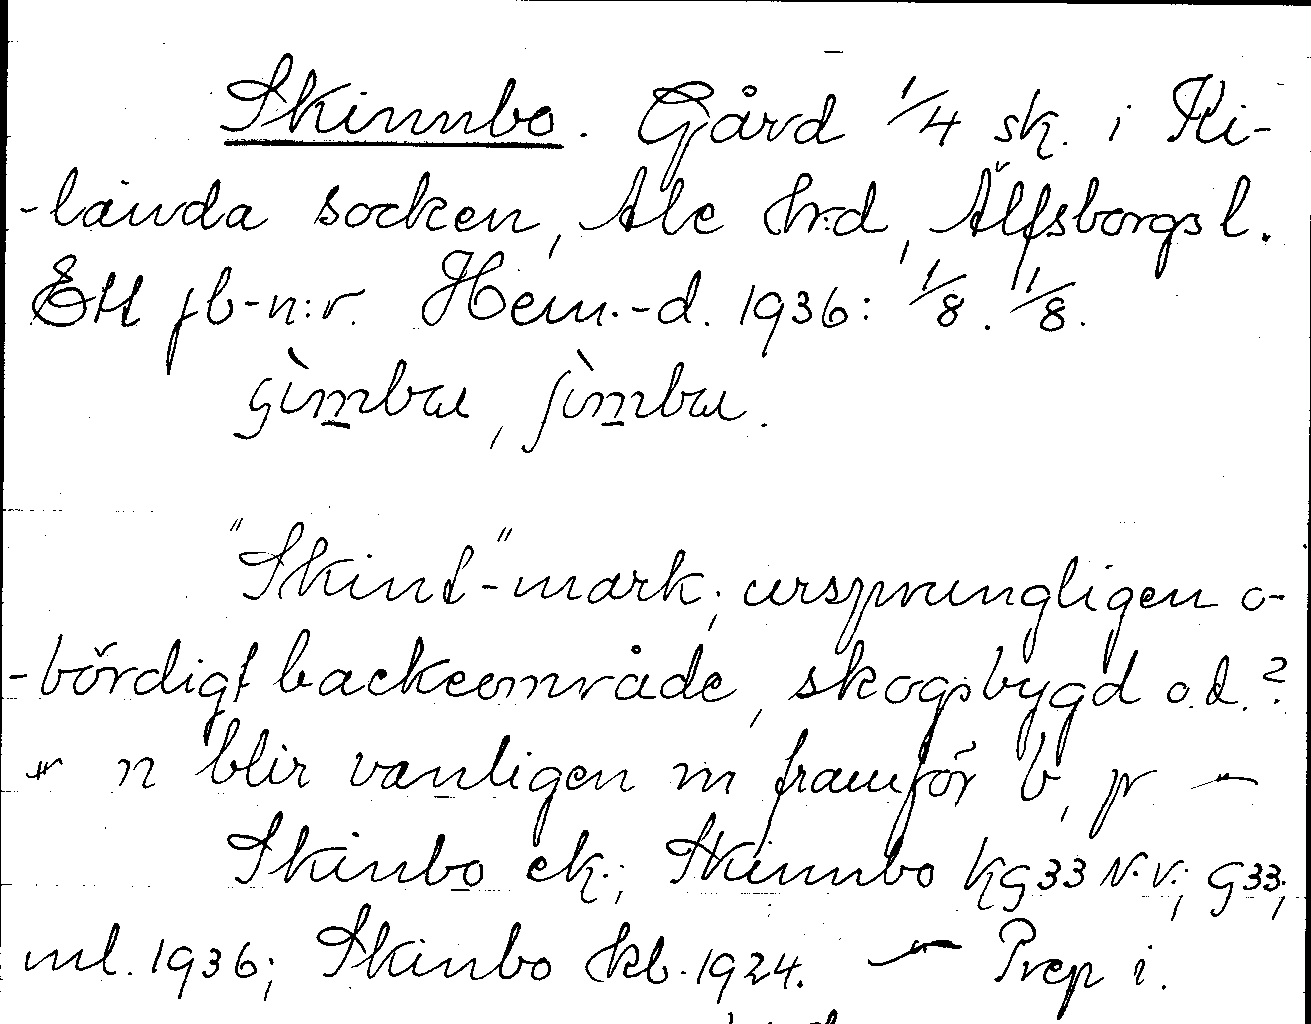 Skinnbo. Gård 1/4 sk. i Ki-
-landa socken, Ale hrd, Älfsborgs l.
Ett jb-n:r. Hem.-d. 1936: 1/8. 1/8.
ʂìmbɯ, ʃìmbɯ.
"Skint"-mark; ursprungligen o-
-bördigt backeområde, skogsbygd o.d.?
- n blir vanligen m framför b, p -
Skinbo ek.; Skinnbo kg33 N.V.; g33;
ml. 1936; Skinbo kb. 1924. - Prep i.